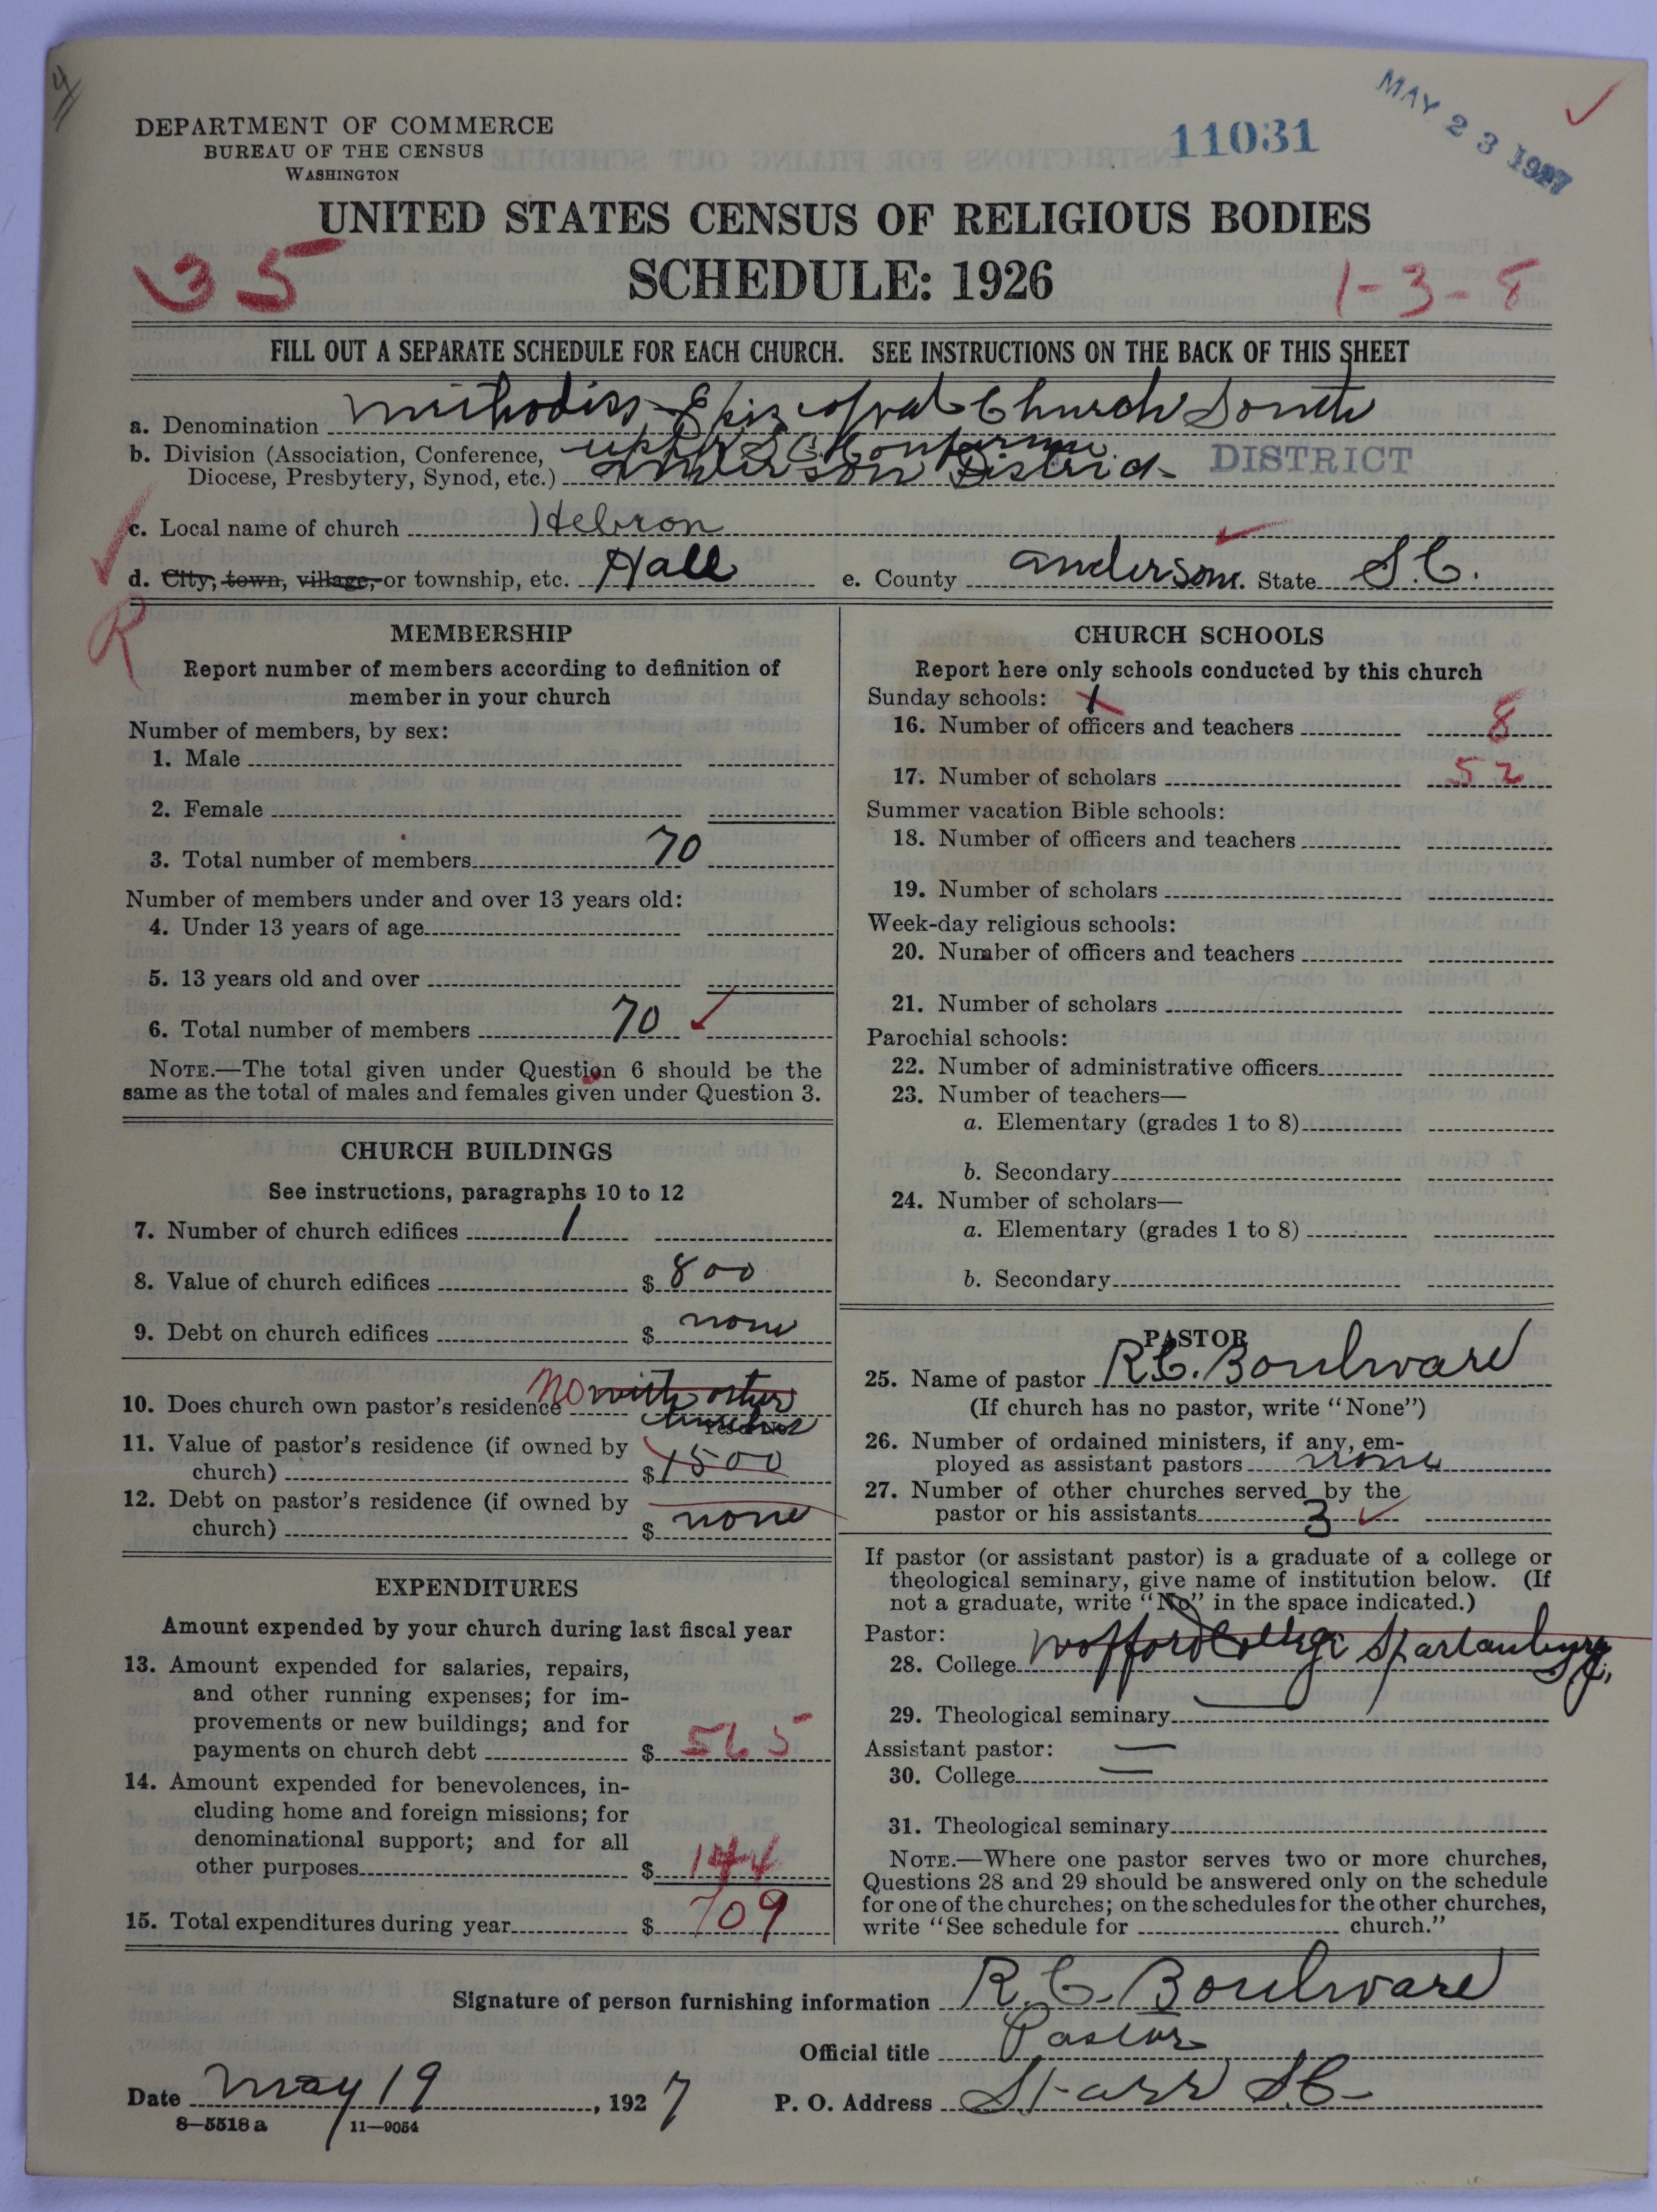 4
DEPARTMENT OF COMMERCE
BUREAU OF THE CENSUS
WASHINGTON
11031
MAY 23 1927
UNITED STATES CENSUS OF RELIGIOUS BODIES
SCHEDULE: 1926
35
1-3-8
FILL OUT A SEPARATE SCHEDULE FOR EACH CHURCH. SEE INSTRUCTIONS ON THE BACK OF THIS SHEET
a. Denomination Methodist Episcopal Church South
b. Division (Association, Conference, Upper S.C. Conference
Diocese, Presbytery, Synod, etc.) Anderson District DISTRICT
c. Local name of church Hebron
d. City, town, village, or township, etc. Hall e. County Anderson. State S.C.
R
MEMBERSHIP
Report number of members according to definition of
member in your church
Number of members, by sex:
1. Male
2. Female
3. Total number of members 70
Number of members under and over 13 years old:
4. Under 13 years of age
5. 13 years old and over
6. Total number of members 70
NOTE.—The total given under Question 6 should be the
same as the total of males and females given under Question 3.
CHURCH BUILDINGS
See instructions, paragraphs 10 to 12
7. Number of church edifices 1
8. Value of church edifices $ 800
9. Debt on church edifices $ none
10. Does church own pastor's residence No with other
churches
11. Value of pastor's residence (if owned by
church) $ 1500
12. Debt on pastor's residence (if owned by
church) $ none
EXPENDITURES
Amount expended by your church during last fiscal year
13. Amount expended for salaries, repairs,
and other running expenses; for im-
provements or new buildings; and for
payments on church debt $ 565
14. Amount expended for benevolences, in-
cluding home and foreign missions; for
denominational support; and for all
other purposes $ 144
15. Total expenditures during year $ 709
CHURCH SCHOOLS
Report here only schools conducted by this church
Sunday schools: X
16. Number of officers and teachers 8
17. Number of scholars 52
Summer vacation Bible schools:
18. Number of officers and teachers
19. Number of scholars
Week-day religious schools:
20. Number of officers and teachers
21. Number of scholars
Parochial schools:
22. Number of administrative officers
23. Number of teachers—
a. Elementary (grades 1 to 8)
b. Secondary
24. Number of scholars—
a. Elementary (grades 1 to 8)
b. Secondary
PASTOR
25. Name of pastor R.C. Boulware
(If church has no pastor, write "None")
26. Number of ordained ministers, if any, em-
ployed as assistant pastors none
27. Number of other churches served by the
pastor or his assistants 3
If pastor (or assistant pastor) is a graduate of a college or
theological seminary, give name of institution below. (If
not a graduate, write "No" in the space indicated.)
Pastor:
28. College Wofford College Spartanburg
29. Theological seminary —
Assistant pastor: —
30. College —
31. Theological seminary
NOTE.—Where one pastor serves two or more churches,
Questions 28 and 29 should be answered only on the schedule
for one of the churches; on the schedules for the other churches,
write "See schedule for church."
Signature of person furnishing information R.C. Boulware
Official title Pastor
Date May 19, 1927 P. O. Address Starr S.C.
8—5518a 11—9054